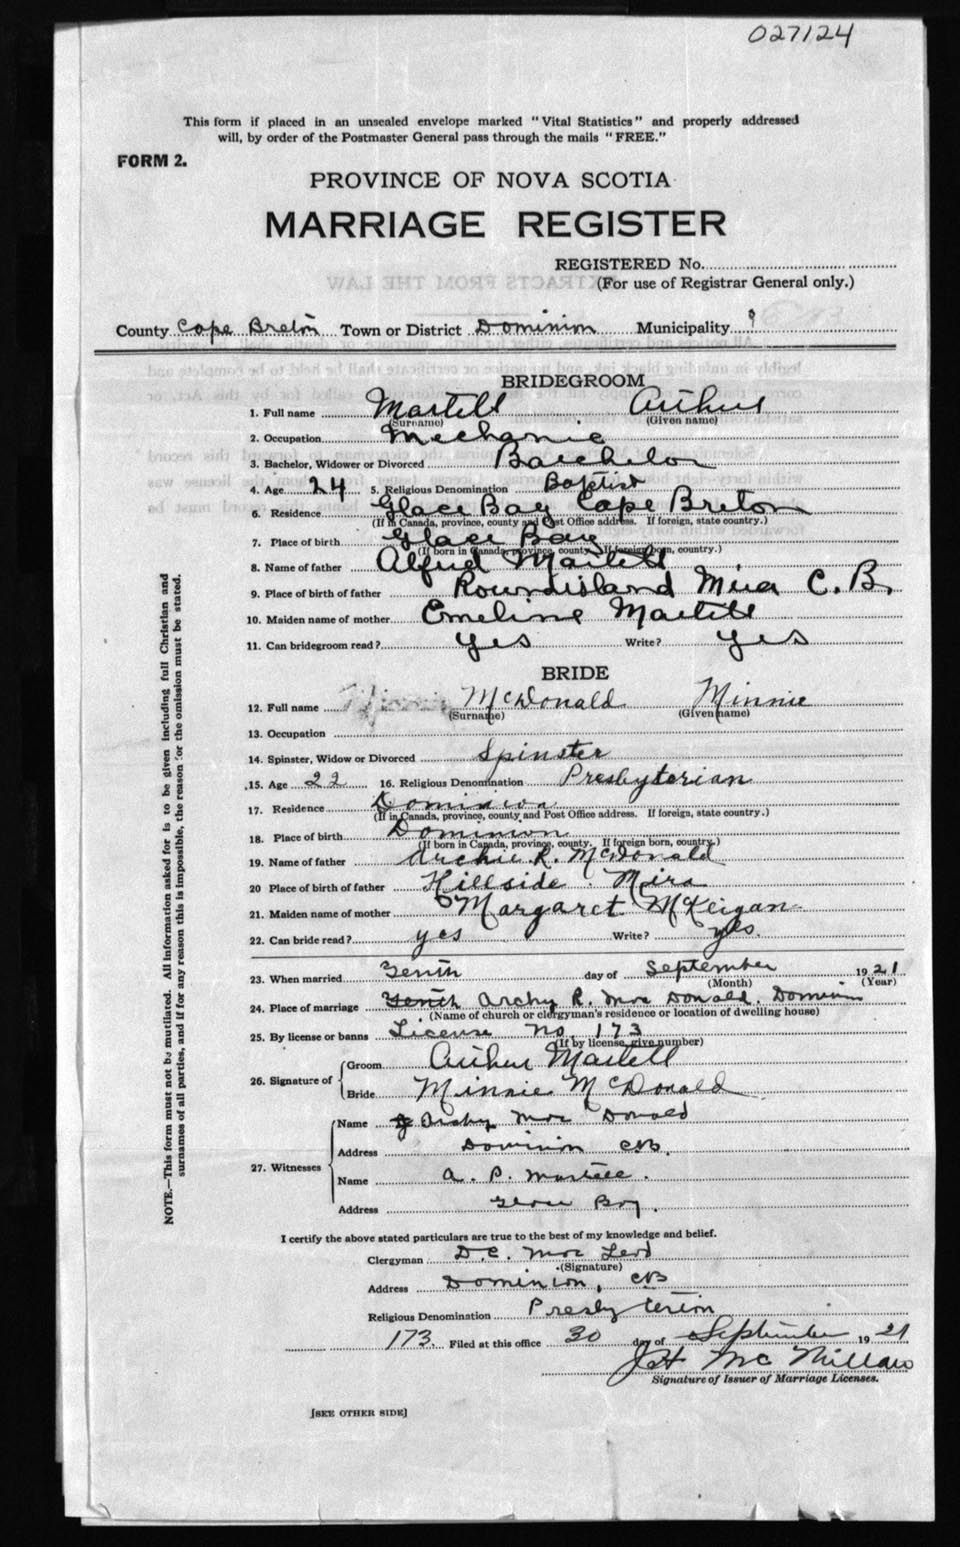 027124
This form if placed in an unsealed envelope marked "Vital Statistics" and properly addressed
will, by order of the Postmaster General pass through the mails "FREE."
FORM 2.
PROVINCE OF NOVA SCOTIA
MARRIAGE REGISTER
REGISTERED No.
(For use of Registrar General only.)
County Cape Breton Town or District Dominion Municipality
BRIDEGROOM
1. Full name Martell Arthur
(Surname) (Given name)
2. Occupation Mechanic
3. Bachelor, Widower or Divorced Batchelor
4. Age 24 5. Religious Denomination Baptist
6. Residence Glace Bay Cape Breton
(If in Canada, province, county and Post Office address. If foreign, state country.)
7. Place of birth Glace Bay
(If born in Canada, province, county. If foreign born, country.)
8. Name of father Alfred Martell
9. Place of birth of father Roundisland Mira C. B.
10. Maiden name of mother Emeline Martell
11. Can bridegroom read? yes Write? yes
BRIDE
12. Full name McDonald Minnie
(Surname) (Given name)
13. Occupation
14. Spinster, Widow or Divorced Spinster
15. Age 22 16. Religious Denomination Presbyterian
17. Residence Dominion
(If in Canada, province, county and Post Office address. If foreign, state country.)
18. Place of birth Dominion
(If born in Canada, province, county. If foreign born, country.)
19. Name of father Archie R. McDonald
20 Place of birth of father Hillside Mira
21. Maiden name of mother Margaret McKeigan
22. Can bride read? yes Write? yes.
23. When married Tenth day of September 1921
(Month) (Year)
24. Place of marriage Tenth Archy R. Mac Donald. Dominion
(Name of church or clergyman's residence or location of dwelling house)
25. By license or banns License No. 173
(If by license, give number)
26. Signature of Groom Arthur Martell
Bride Minnie McDonald
27. Witnesses Name Archy Mac Donald
Address Dominion CB.
Name A. P. Martell.
Address Glace Bay.
I certify the above stated particulars are true to the best of my knowledge and belief.
Clergyman D.C. Mac Leod
(Signature)
Address Dominion, CB
Religious Denomination Presbyterian
173. Filed at this office 30 day of September 1921
JH McMillan
Signature of Issuer of Marriage Licenses.
[SEE OTHER SIDE]
NOTE.—This form must not be mutilated. All information asked for is to be given including full Christian and
surnames of all parties, and if for any reason this is impossible, the reason for the omission must be stated.